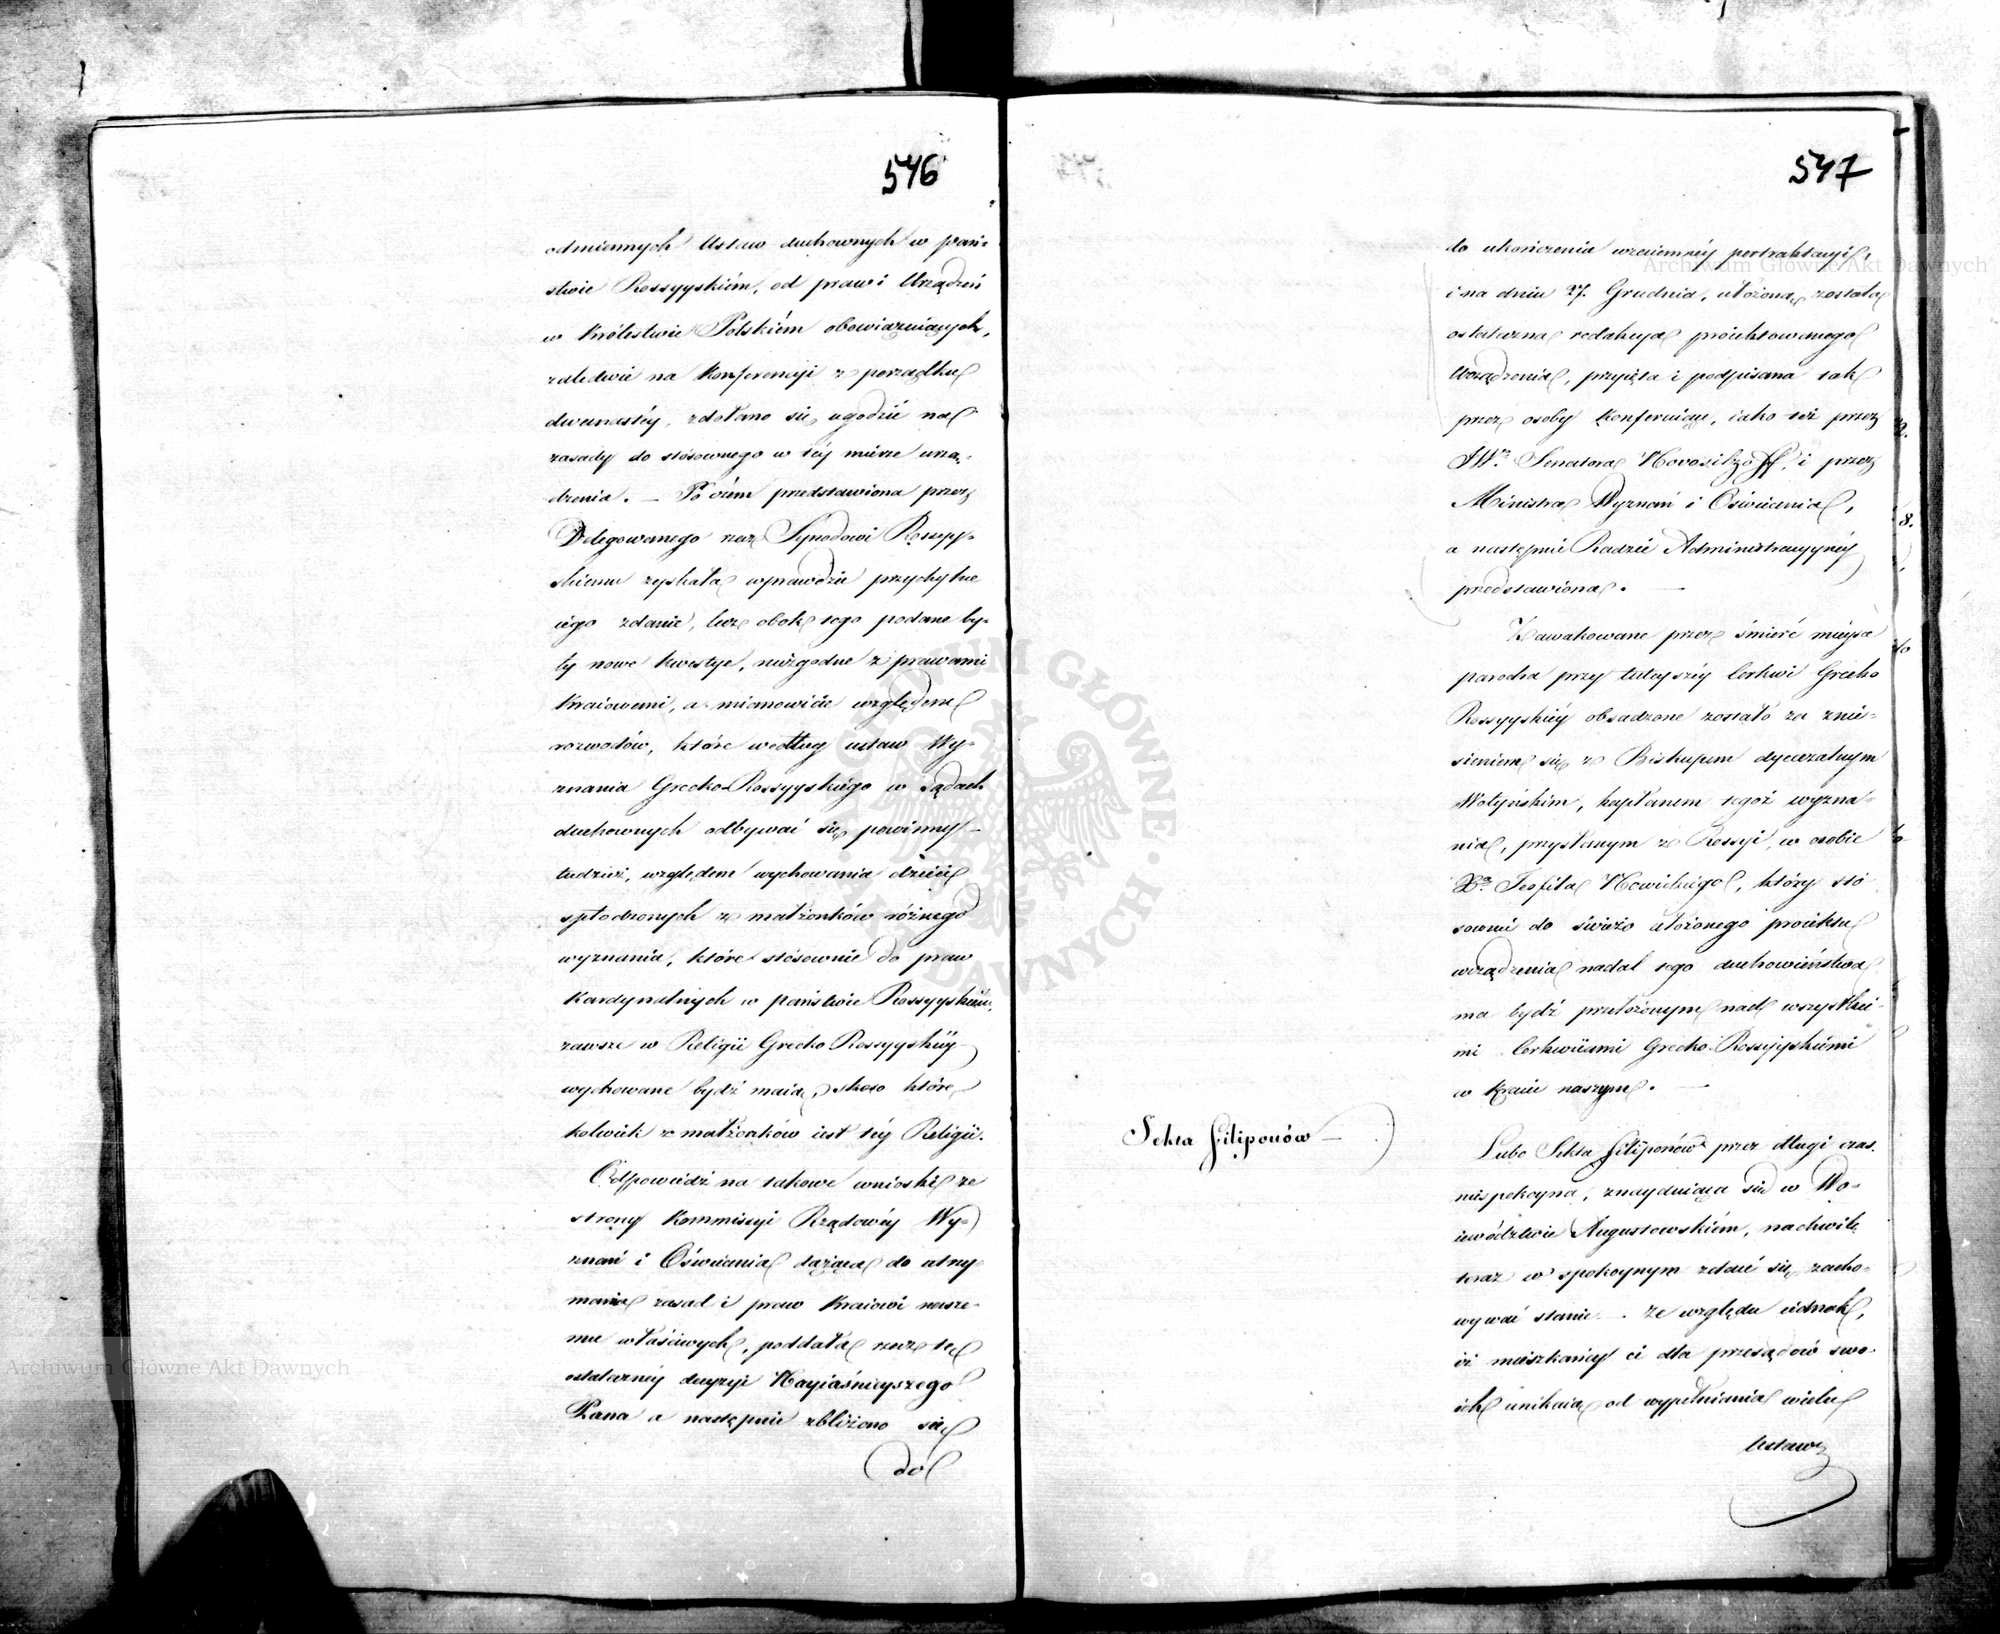 546
odmiennych Ustaw duchownych w pań-
stwie Rossyyskiém, od praw i Urządzeń
w Królestwie Polskiém obowiązuiących,
zaledwie na Konferencyi z porządku
dwunastéy, zdołano się ugodzić na
zasady do stósownego w téy mierze urzą-
dzenia. — Po czém przedstawiona przez
Delegowanego rzecz Synodowi Rossyy-
skiemu zyskała wprawdzie przychylne
iego zdanie, lecz obok tego podane by-
ły nowe kwestye, niezgodne z prawami
Kraiowemi, a mianowicie względem
rozwodów, które według ustaw Wy-
znania Grecko-Rossyyskiego w sądach
duchownych odbywać się powinny —
tudzież, względem wychowania dzieci
spłodzonych z małżonków różnego
wyznania, które stósownie do praw
Kardynalnych w państwie Rossyyskiém,
zawsze w Religii Grecko Rossyyskiéy
wychowane bydź maią, skoro które
kolwiek z małżonków iest téy Religii.
Odpowiedź na takowe wnioski ze
strony Kommissyi Rządowéy Wy-
znań i Oświecenia dążąca do utrzy-
mania zasad i praw Kraiowi nasze-
mu właściwych, poddała rzecz tę
ostateczney decyzyi Nayiaśnieyszego
Pana a następnie zbliżono się
do
547
do ukończenia wzaiemnéy pertraktacyi,
i na dniu 27. Grudnia, ułożona została
ostateczna redakcya proiektowanego
Urządzenia, przyięta i podpisana tak
przez osoby Konferuiące, iako też przez
JWo Senatora Nowosilzoff, i przez
Ministra Wyznań i Oświecenia,
a następnie Radzie Administracyynéy
przedstawiona. —
Zawakowane przez śmierć mieysce
parocha przy tuteyszéy Cerkwi Grecko
Rossyyskiéy obsadzone zostało za znie-
sieniem się z Biskupem dyecezalnym
Wołyńskim, kapłanem tegoż wyzna-
nia, przysłanym z Rossyi, w osobie
Xa Teofila Nowickiego, który stó
sownie do świeżo ułożonego proiektu
urządzenia nadal tego duchowieństwa
ma bydź przełożonym nad wszystkie-
mi Cerkwiami Grecko-Rossyyskiemi
w Kraiu naszym. —
Sekta Filiponów —
Lubo Sekta Filiponów przez długi czas
niespokoyna, znayduiąca się w Wo-
iewództwie Augustowskiém, na chwilę
teraz w spokoynym zdaie się zacho-
wywać stanie — ze względu iednak,
iż mieszkańcy ci dla przesądów swo-
ich unikaią od wypełniania wielu
Ustaw
Archiwum Główne Akt Dawnych
Archiwum Główne Akt Dawnych
ARCHIWUM GŁÓWNE AKT DAWNYCH